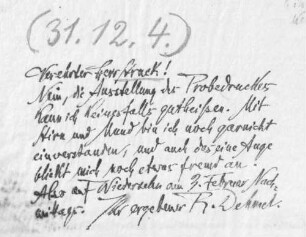 (31.12.4.)
Verehrter Herr Struck!
Nein, die Ausstellung des Probedruckes
kann ich keinesfalls gutheißen. Mit
Stirn und Mund bin ich noch garnicht
einverstanden, und auch das eine Auge
blickt mich noch etwas fremd an.
Also auf Wiedersehn am 3. Februar Nach-
mittags. Ihr ergebener R. Dehmel.